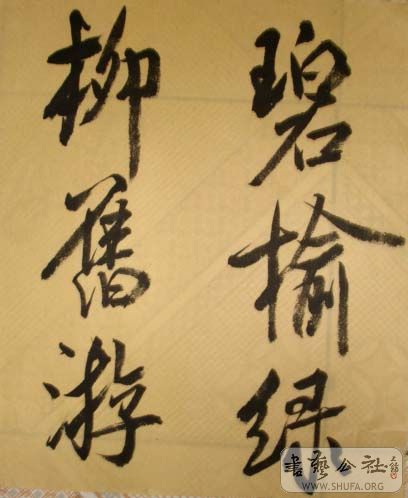 碧榆绿
柳舊游
書藝公社
WWW.SHUFA.ORG